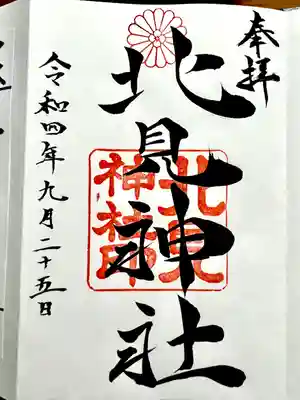 奉拝
北見神社
北見
神社印
令和四年九月二十五日